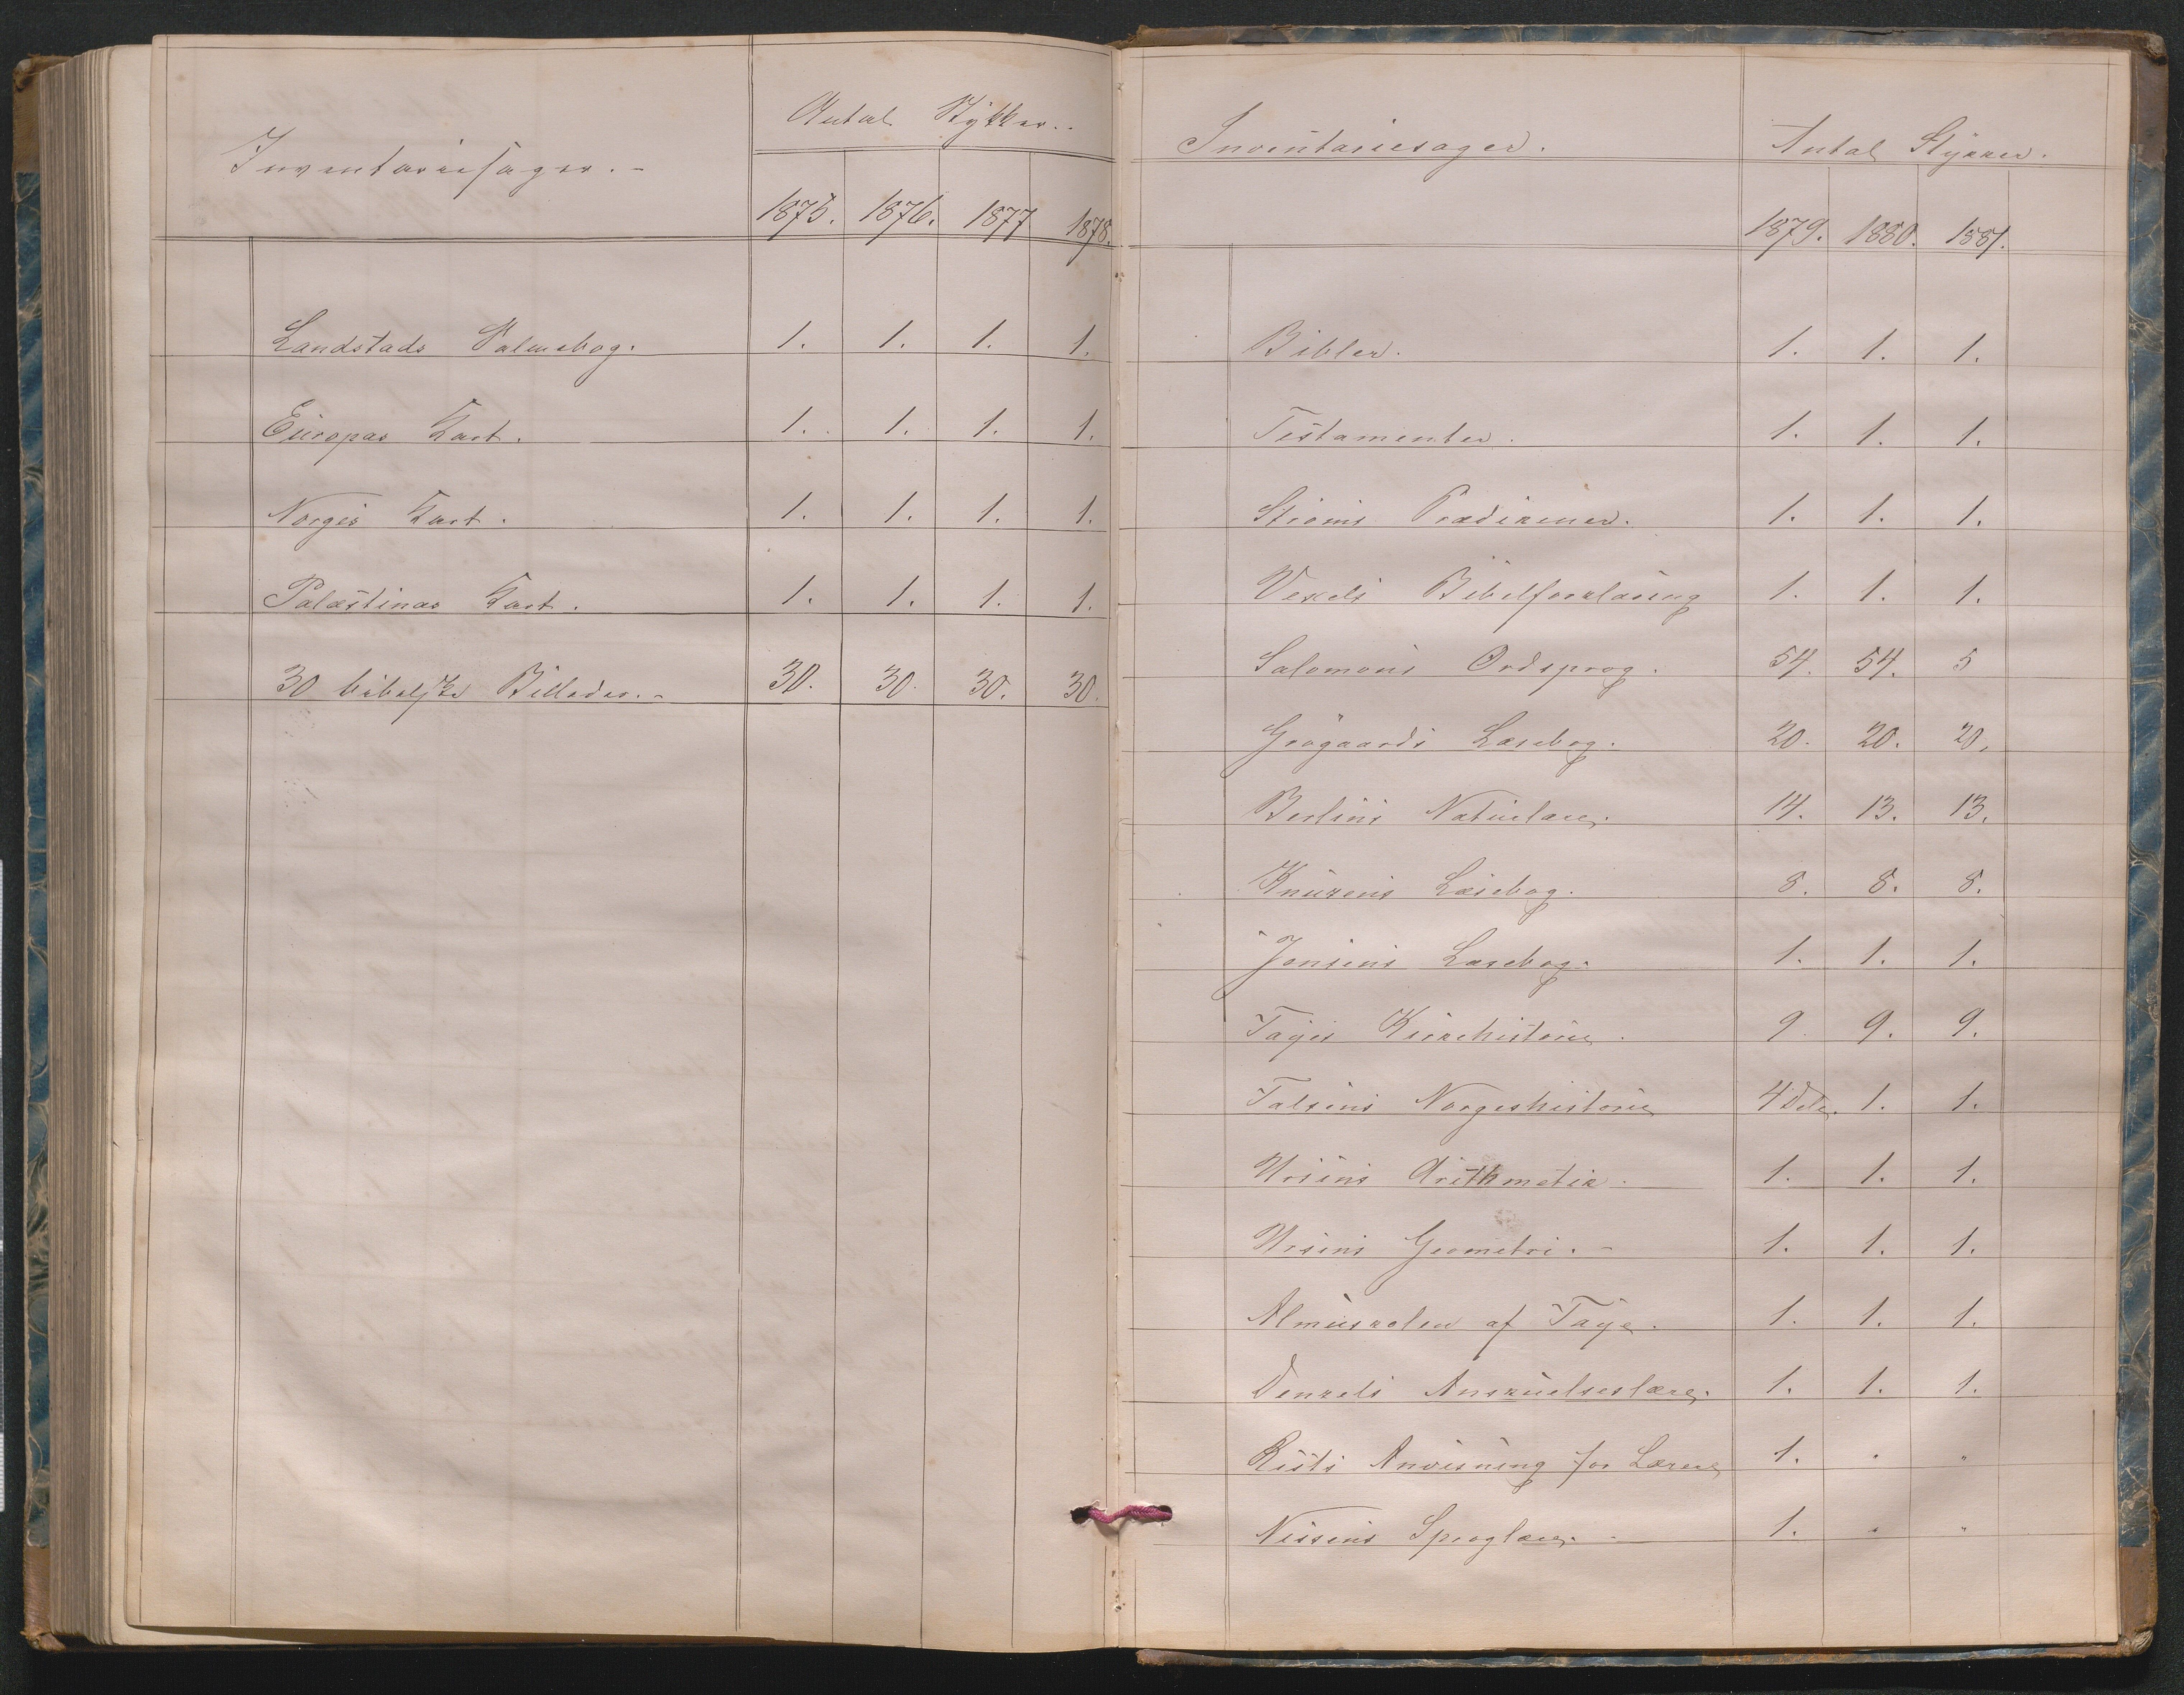 Inventariesager.-
Antal Stykker..
1875. 1876. 1877 1878.
Landstads Salmebog. 1. 1. 1. 1.
Europas Kart. 1. 1. 1. 1.
Norges Kart. 1. 1. 1. 1.
Palæstinas Kart. 1. 1. 1. 1.
30 bibelske Billeder.- 30. 30. 30. 30.
Inventariesager. Antal Stykker.
1879. 1880. 1881.
Bibler. 1. 1. 1.
Testamenter. 1. 1. 1.
Strøms Prædikener. 1. 1. 1.
Vexels Bibelforklaring 1. 1. 1.
Salomons Ordsprog. 54. 54. 5
Grøgaards Læsebog. 20. 20. 20.
Berlins Naturlære. 14. 13. 13.
Knuzens Læsebog. 8. 8. 8.
Jensens Læsebog. 1. 1. 1.
Fayes Kirkehistorie. 9 9. 9.
Falsens Norgeshistorie 4 Dele. 1. 1.
Ursins Arithmetik. 1. 1. 1.
Ursins Geometri.- 1. 1. 1.
Almuskolen af Faye. 1. 1. 1.
Denzels Anskuelseslære. 1. 1. 1.
Rists Anvisning for Lærere 1. " "
Nissens Sproglære. 1. " "